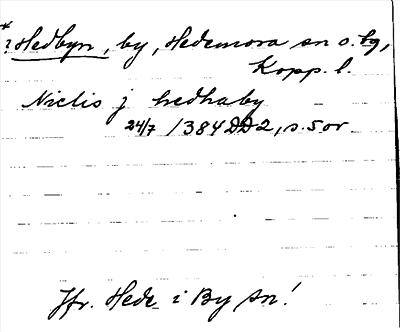 *? Hedbyn, by, Hedemora sn o. hg,
Kopp. l.
Niclis j hedhaby
24/7 1384 DD2, s. 5 or.
Jfr. Hede i By sn!